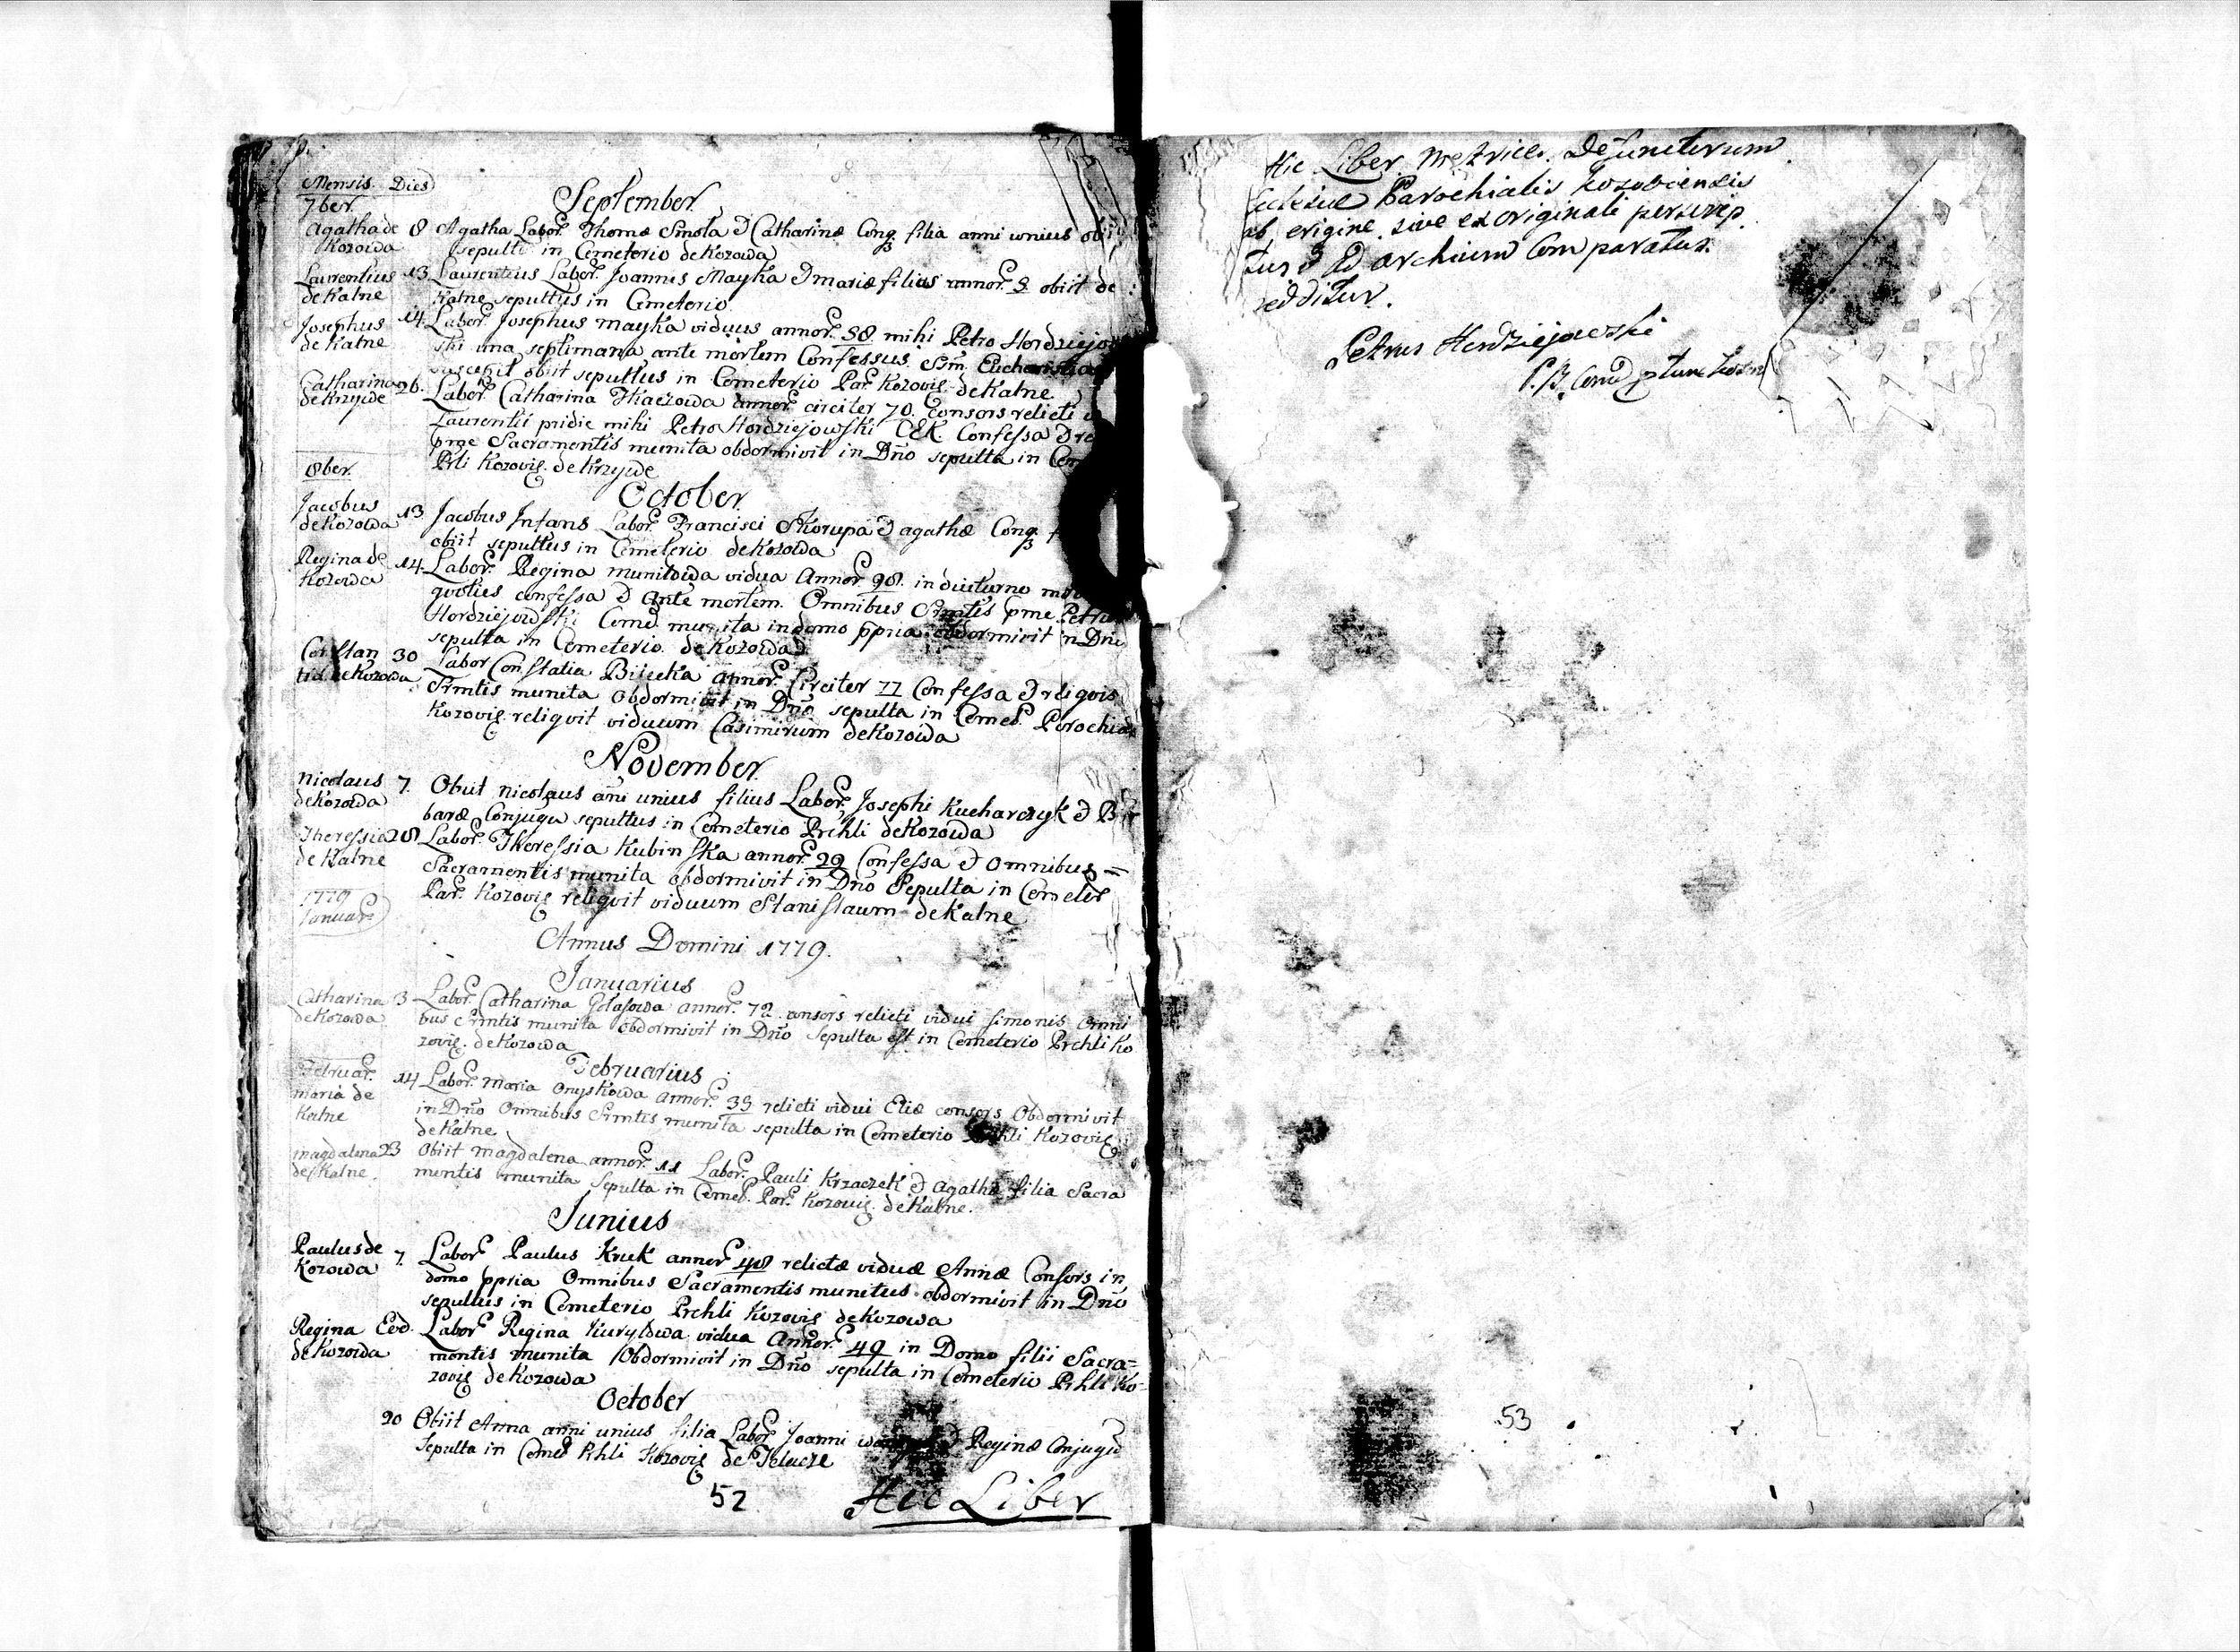 Mensis Dies
7ber.
September
Agatha de Kozowa 8 Agatha Labor. Thomæ Smola & Catharinæ Cong. filia anni unius
sepulta in Cemeterio de Kozowa
Laurentius de Kalne 13 Laurentius Labor. Joannis Mayka & Mariæ filius annor. obiit de
Kalne sepultus in Cemeterio
Josephus de Kalne 14 Labor. Josephus Mayka viduus annor. 38 mihi Petro
ski una septimana ante mortem Confessus Ssm. Eucharistia
suscepit obiit sepultus in Cemeterio Par. Kozovig. de Kalne
Catharina de Krzywe 26. Labor. Catharina Tkaczowa annor. circiter 70. consors relicti
Laurentii pridie mihi Petro Hordziejowski CEK. Confessa &
pmę Sacramentis munita obdormivit in Dño sepulta in
Prli Kozovig. de Krzywe
8ber.
October
Jacobus de Kozowa 13 Jacobus Infans Labor. Francisci Skorupa & agathæ Cong.
obiit sepultus in Cemeterio de Kozowa
Regina de Kozowa 14. Labor. Regina Munitowa vidua Annor. 98. in diuturno
quoties confessa & Ante mortem. Omnibus Srmtis pme Petrum
Hordziejowski Comd. munita in domo ppria obdormivit in Dño
sepulta in Cemeterio de Kozowa
Constantia de Kozowa 30 Labor Constatia Bilecka annor. Circiter 77 Confessa & religvis
Srmtis munita Obdormivit in Dño sepulta in Cemet. Parochia
Kozovig. religvit viduum Casimirum de Kozowa
November
Nicolaus de Kozowa 7. Obiit Nicolaus añi unius filius Labor. Josephi Kucharczyk & Bar
baræ Conjugu sepultus in Cemeterio Prchli de Kozowa
Theressia de Kalne 28 Labor. Theressia Kubinska annor. 29 Confessa & Omnibus =
Sacramentis munita obdormivit in Dño Sepulta in Cemeter
Par. Kozovig. religvit viduum Stanislaum de Kalne
1779
Januar.
Annus Domini 1779.
Januarius
Catharina de Kozowa 3 Labor. Catharina Gołasowa annor. 72. consors relicti vidui Simonis Omni
bus Srmtis munita Obdormivit in Dño Sepulta est in Cemeterio Prchli Ko
zovig. de Kozowa
Februar.
Februarius
Maria de Kalne 14 Labor. Maria Onyskowa annor. 35 relicti vidui Eliæ consors Obdormivit
in Dño Omnibus Srmtis munita sepulta in Cemeterio Prchli Kozovig.
de Kalne
Magdalena de Kalne 23 Obiit Magdalena annor. 11 Labor. Pauli Krzaczek & Agathæ filia Sacra
mentis munita Sepulta in Cemet. Par. Kozovig. de Kalne.
Junius
Paulus de Kozowa 7. Labor. Paulus Kruk annor. 48 relictæ viduæ Annæ Consors in
domo ppria Omnibus Sacramentis munitus obdormivit in Dño
sepultus in Cemeterio Prchli Kozovig de Kozowa
Regina de Kozowa Eod. Labor. Regina Kuryłowa vidua Annor. 49 in Domo filii Sacra=
mentis munita Obdormivit in Dño sepulta in Cemeterio Prhli Ko=
zovig de Kozowa
October
20 Obiit Anna anni unius filia Labor. Joanni & Reginæ Conjugu
Sepulta in Cemet Prhli Kozovig de
52
Hic Liber
Hic Liber Metrices. Defunctorum.
Ecclesiæ Parochialis Kozoviensis
ab origine. sive ex originali perscrip.
tus & ad archivum Comparatus.
redditur.
Petrus Hordziejowski
53